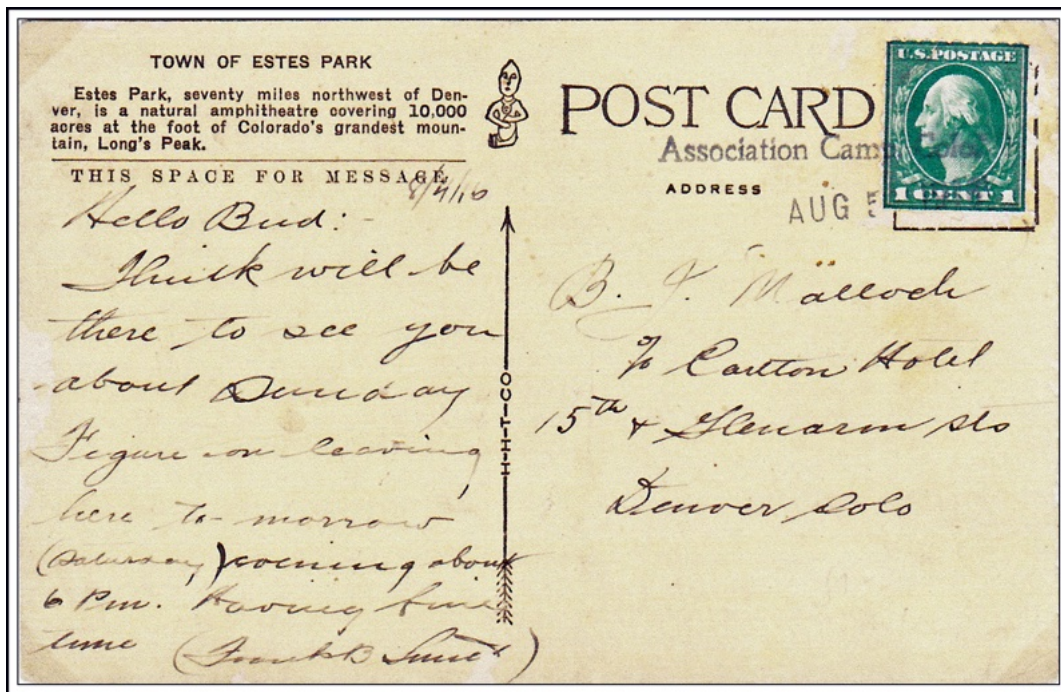 TOWN OF ESTES PARK
Estes Park, seventy miles northwest of Den-
ver, is a natural amphitheatre covering 10,000
acres at the foot of Colorado's grandest moun-
tain, Long's Peak.
THIS SPACE FOR MESSAGE
8/4/16
Hello Bud:-
Think will be
there to see you
about Sunday
Figure on leaving
here to-morrow
(Saturday) evening about
6 Pm. Having fine
time (Frank B Smith)
H-H-T-CO
POST CARD
Association Camp, Colo.
ADDRESS
AUG 5
U.S. POSTAGE
1 CENT 1
B. F. Malloch
c/o Carlton Hotel
15th & Glenarm sts
Denver Colo